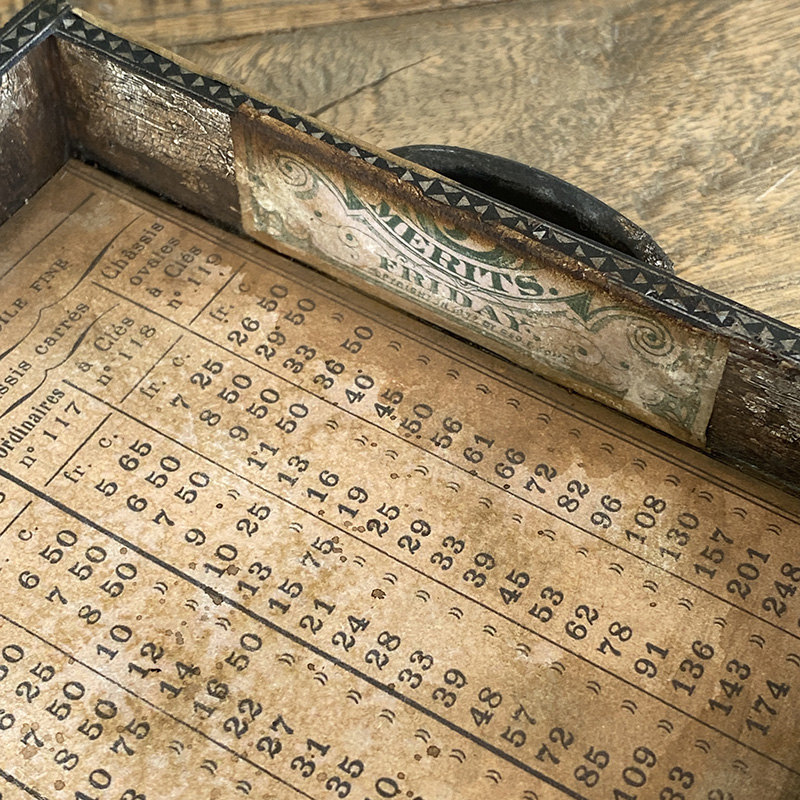 MERITS.
FRIDAY.
FINE
carrés
ordinaires
n° 117
à Clés
n° 118
Châssis
ovales
à Clés
n° 119
fr. c.
26 50
29 50
33 »
36 50
40 »
45 »
50 »
56 »
61 »
66 »
72 »
82 »
96 »
108 »
130 »
157 »
201 »
248 »
fr. c.
7 25
8 50
9 50
11 50
13 »
16 »
19 »
25 »
29 »
33 »
39 »
45 »
53 »
62 »
78 »
91 »
136 »
143 »
174 »
fr. c.
5 65
6 50
7 50
9 »
10 25
13 »
15 75
21 »
24 »
28 »
33 »
39 »
48 »
57 »
72 »
85 »
109 »
c.
6 50
7 50
8 50
10 »
12 »
14 »
16 50
22 »
27 »
31 »
35 »
50
25
7 50
8 50
10 75